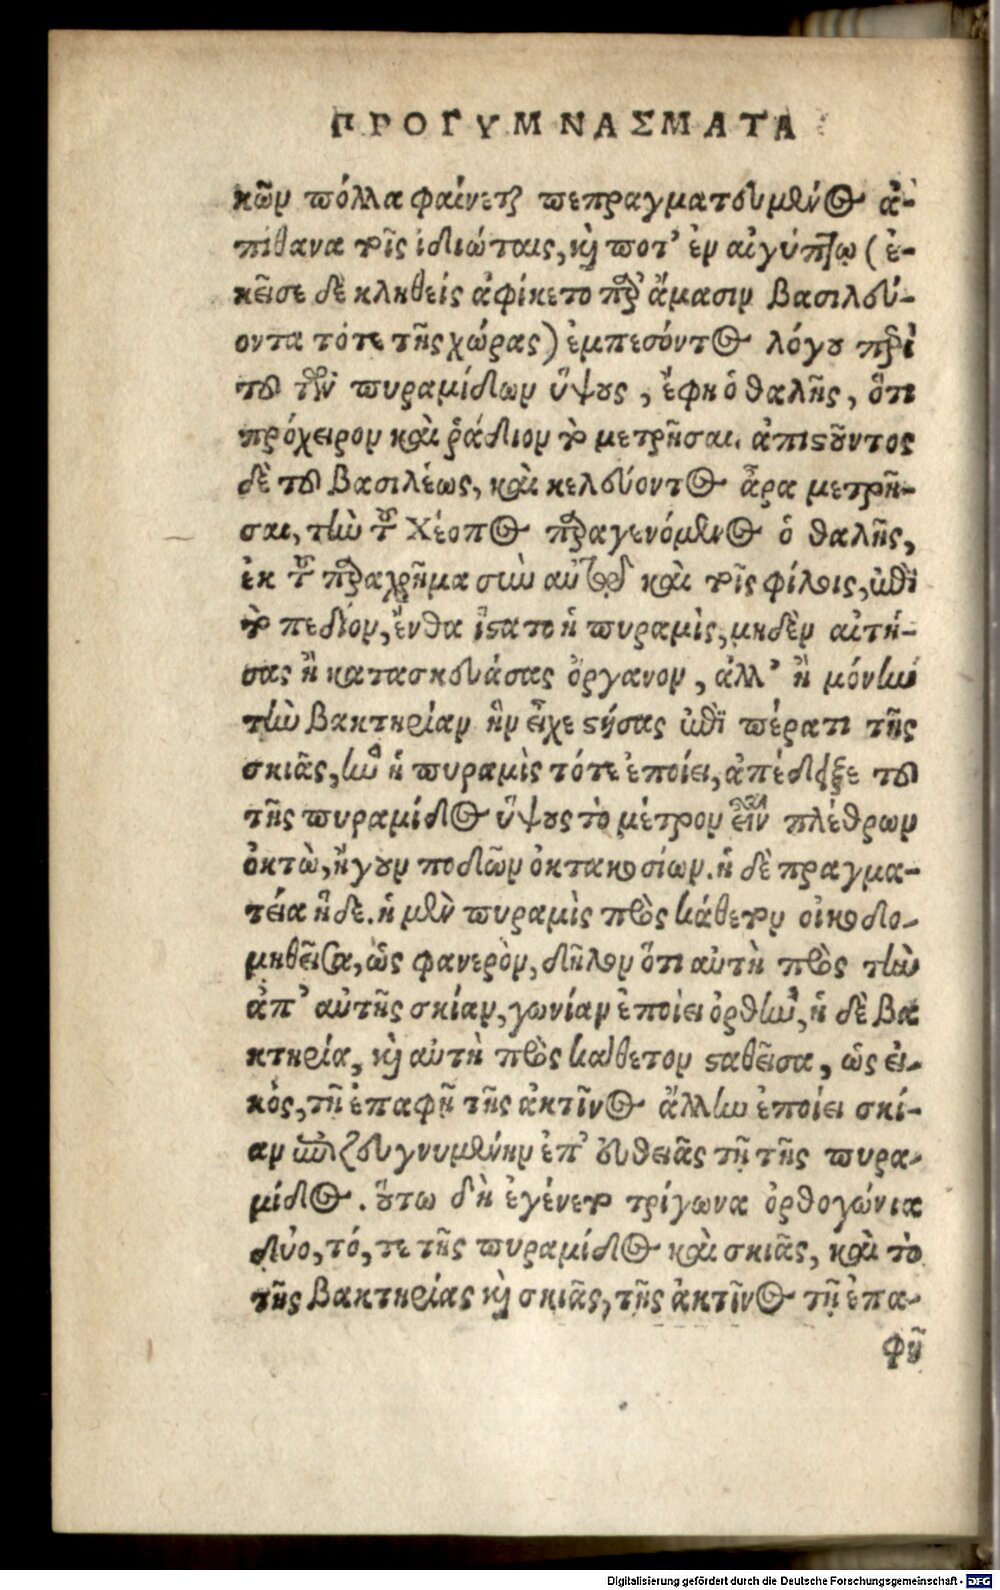 ΠΡΟΓΥΜΝΑΣΜΑΤΑ
κῶν πόλλα φαίνεται πεπραγματευμένος ἀ-
πίθανα τοῖς ἰδιώταις, καὶ ποτ' ἐν αἰγύπτῳ (ἐ-
κεῖσε δὲ κληθείς ἀφίκετο παρ' ἄμασιν βασιλεύ-
οντα τότε τῆς χώρας) ἐμπεσόντος λόγου περὶ
τοῦ τῶν πυραμίδων ὕψους, ἔφη ὁ θαλῆς, ὅτι
πρόχειρον καὶ ῥάδιον τὸ μετρῆσαι. ἀπιστοῦντος
δὲ τοῦ βασιλέως, καὶ κελεύοντος ἆρα μετρῆ-
σαι, τὴν τοῦ Χέοπος παραγενόμενος ὁ θαλῆς,
ἐκ τοῦ παραχρῆμα σὺν αὐτῷ καὶ τοῖς φίλοις, ἐπὶ
τὸ πεδίον, ἔνθα ἵστατο ἡ πυραμὶς, μηδὲν αἰτή-
σας ἢ κατασκευάσας ὄργανον, ἀλλ' ἢ μόνην
τὴν βακτηρίαν ἣν εἶχε στήσας ἐπὶ πέρατι τῆς
σκιᾶς, ἣν ἡ πυραμὶς τότε ἐποίει, ἀπέδειξε τοῦ
τῆς πυραμίδος ὕψους τὸ μέτρον εἶναι πλέθρων
ὀκτὼ, ἤγουν ποδῶν ὀκτακοσίων. ἡ δὲ πραγμα-
τεία ἥδε. ἡ μὲν πυραμὶς πρὸς κάθετον οἰκοδο-
μηθεῖσα, ὡς φανερὸν, δῆλον ὅτι αὐτὴ πρὸς τὴν
ἀπ' αὐτῆς σκίαν, γωνίαν ἐποίει ὀρθὴν, ἡ δὲ βα
κτηρία, καὶ αὐτὴ πρὸς κάθετον σταθεῖσα, ὡς εἰ-
κὸς, τῇ ἐπαφῇ τῆς ἀκτῖνος ἄλλην ἐποίει σκί-
αν ὑποζευγνυμένην ἐπ' εὐθειᾶς τῇ τῆς πυρα-
μίδος. οὕτω δὴ ἐγένετο τρίγωνα ὀρθογώνια
δύο, τό, τε τῆς πυραμίδος καὶ σκιᾶς, καὶ τὸ
τῆς βακτηρίας καὶ σκιᾶς, τῆς ἀκτῖνος τῇ ἐπα-
φῇ
Digitalisierung gefördert durch die Deutsche Forschungsgemeinschaft - DFG